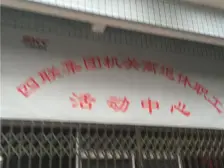 四联集团机关离退休职工
活动中心